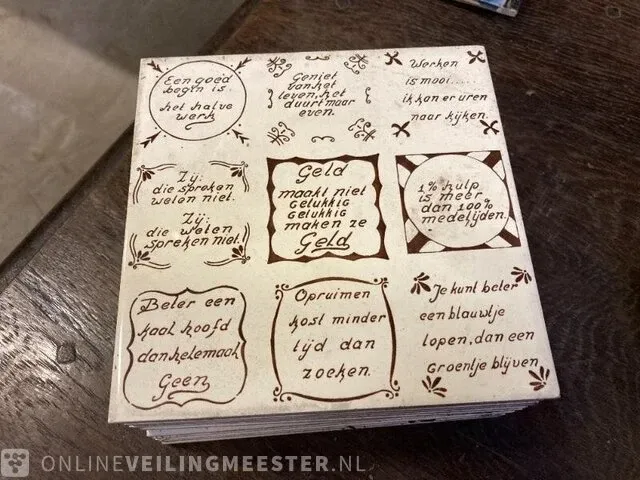 Een goed
begin is
het halve
werk
Geniet
van het
leven, het
duurt maar
even.
Werken
is mooi.....
ik kan er uren
naar kijken.
Zij:
die spreken
weten niet.
Zij:
die weten
spreken niet.
Geld
maakt niet
gelukkig
gelukkig
maken ze
Geld
1% hulp
is meer
dan 100%
medelijden.
Beter een
kaal hoofd
dan helemaal
Geen
Opruimen
kost minder
tijd dan
zoeken.
Je kunt beter
een blauwtje
lopen, dan een
groentje blijven
ONLINEVEILINGMEESTER.NL